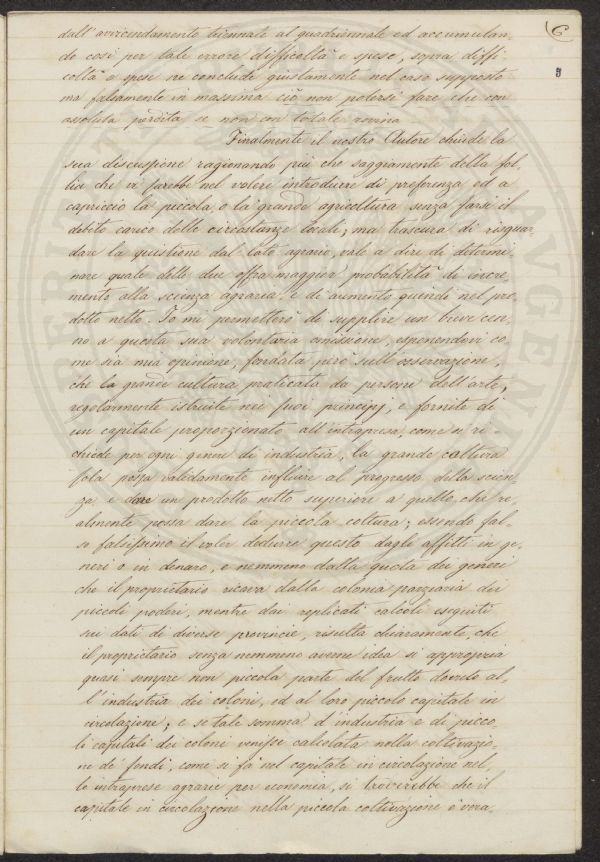 6
5
dall'avvicendamento triennale al quadriennale ed accumulan-
do così per tale errore difficoltà e spese, sopra diffi-
coltà e spese ne conclude giustamente nel caso supposto
ma falsamente in massima ciò non potersi fare che con
assoluta perdita se non con totale rovina
Finalmente il nostro Autore chiude la
sua discussione ragionando più che saggiamente della fol-
lia che vi sarebbe nel volere introdurre di preferenza ed a
capriccio la piccola, o la grande agricoltura senza farsi il
debito carico delle circostanze locali; ma trascura di risguar-
dare la quistione dal lato agrario, vale a dire di determi-
nare quale delle due offra maggior probabilità di incre-
mento alla scienza agraria, e di aumento quindi nel pro-
dotto netto. Io mi permetterò di supplire un breve cen-
no a questa sua volontaria omissione, esponendovi co-
me sia mia opinione, fondata però sull'osservazione,
che la grande cultura praticata da persone dell'arte,
regolarmente istruite nei suoi principj, e fornite di
un capitale proporzionato all'intrapresa, come si ri-
chiede per ogni genere di industria, la grande coltura
sola possa validamente influire al progresso della scien-
za e dare un prodotto netto superiore a quello, che re-
almente possa dare la piccola coltura; essendo fal-
so falsissimo il voler dedurre questo dagli affitti in ge-
neri o in denaro, e nemmeno dalla quota dei generi
che il proprietario ricava dalla colonia parziaria dei
piccoli poderi, mentre dai replicati calcoli eseguiti
sui dati di diverse provincie, risulta chiaramente, che
il proprietario senza nemmeno averne idea si appropria
quasi sempre non piccola parte del frutto dovuto al-
l'industria dei coloni, ed al loro piccolo capitale in
circolazione; e se tale somma d'industria e di picco-
li capitali dei coloni venisse calcolata nella coltivazio-
ne de' fondi, come si fà nel capitale in circolazione nel-
le intraprese agrarie per economia, si troverebbe che il
capitale in circolazione nella piccola coltivazione è vera-